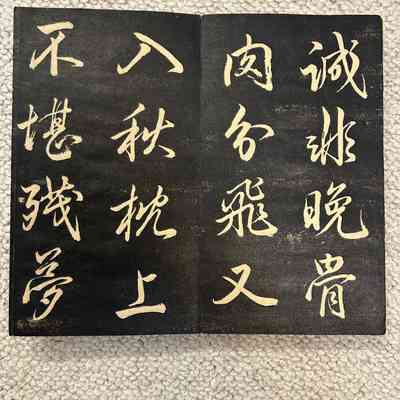 誠非晚骨
肉分飛又
入秋枕上
不堪殘夢